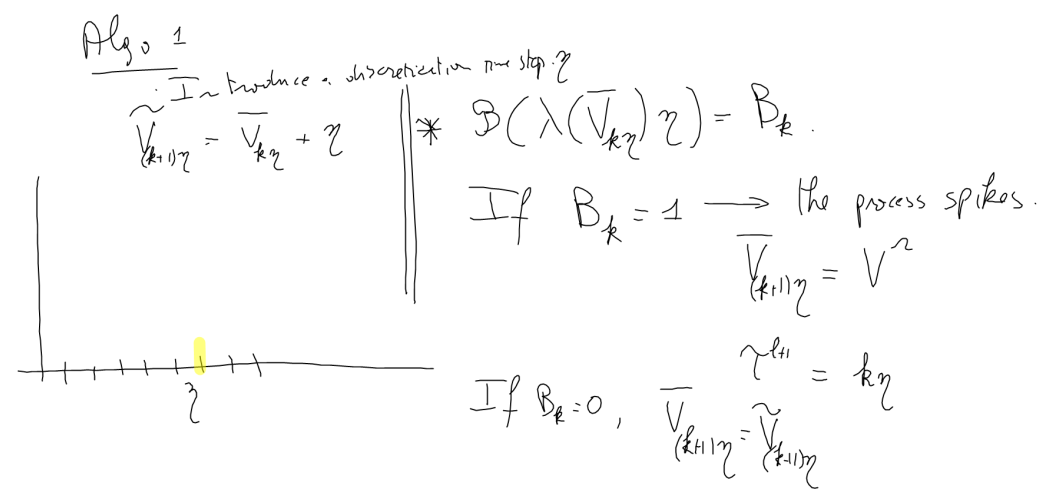 Algo 1
Introduce a discretization time step η
Ṽ_{(k+1)η} = V̄_{kη} + η
η
* B(λ(V̄_{kη}) η) = B_k.
If B_k = 1 → the process spikes.
V̄_{(k+1)η} = V^r
τ^{l+1} = kη
If B_k = 0, V̄_{(k+1)η} = Ṽ_{(k+1)η}